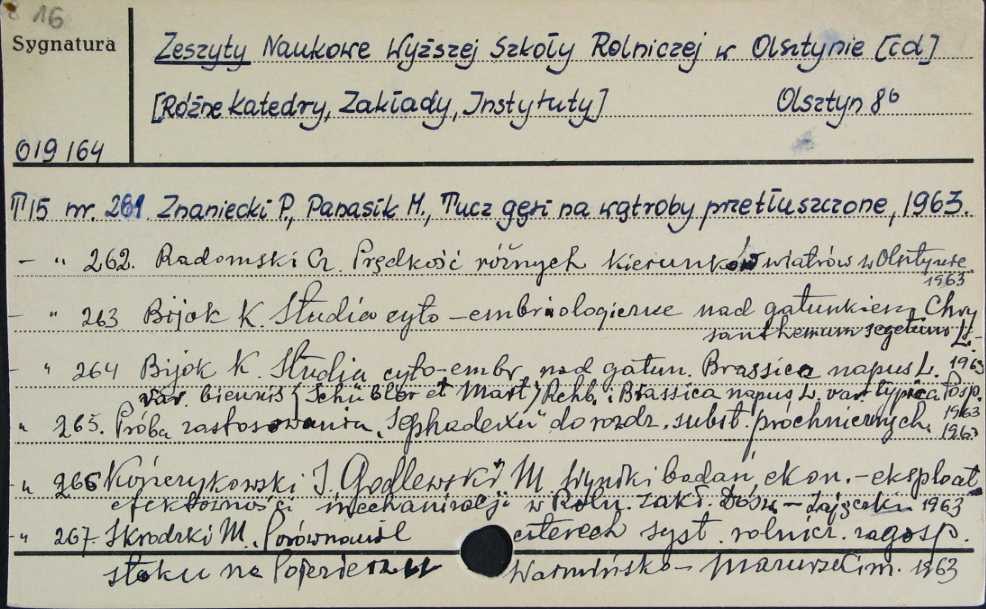 16
Sygnatura
Zeszyty Naukowe Wyższej Szkoły Rolniczej w Olsztynie [cd]
[Różne Katedry, Zakłady, Instytuty] Olsztyn 8b
019164
T15 nr. 261 Znaniecki P., Panasik M., Tucz gęsi na wątroby przetłuszczone, 1963.
– " 262. Radomski Cz. Prędkość różnych kierunków wiatrów w Olsztynie
1963
– " 263 Bijok K. Studia cyto-embriologiczne nad gatunkiem Chry
santhemum segetum L.
– " 264 Bijok K. Studia cyto-embr. nad gatun. Brassica napus L. 1963
var. biennis (Schübler et Mart) Rchb. i Brassica napus L. var. typica Posp.
1963
" 265. Próba zastosowania "Sephadexu" do rozdz. subst. próchnicznych 1963
– " 266 Kończykowski J. Godlewski M. Wyniki badań ekon.-eksploat
efektowności mechanizacji w Roln. Zakł. Dośw – Zajączk. 1963
– " 267. Skrodzki M. Porównanie czterech syst. rolnicz. zagosp.
stoku na Pojezierzu Warmińsko-Mazurskim. 1963